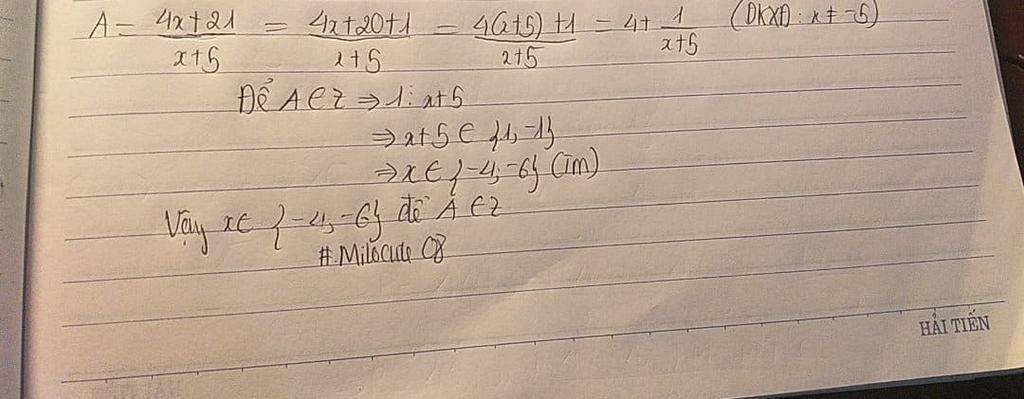 A = 4x+21 / x+5 = 4x+20+1 / x+5 = 4(x+5)+1 / x+5 = 4 + 1 / x+5 (ĐKXĐ: x ≠ -5)
Để A ∈ Z ⇒ 1 ⋮ x+5
⇒ x+5 ∈ {1, -1}
⇒ x ∈ {-4, -6} (tm)
Vậy x ∈ {-4, -6} để A ∈ Z
# Milocute 08
HẢI TIẾN